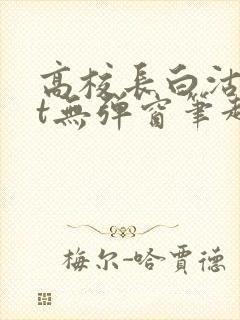 高校長白洁
t無彈窗筆趣
梅尔-哈賈德